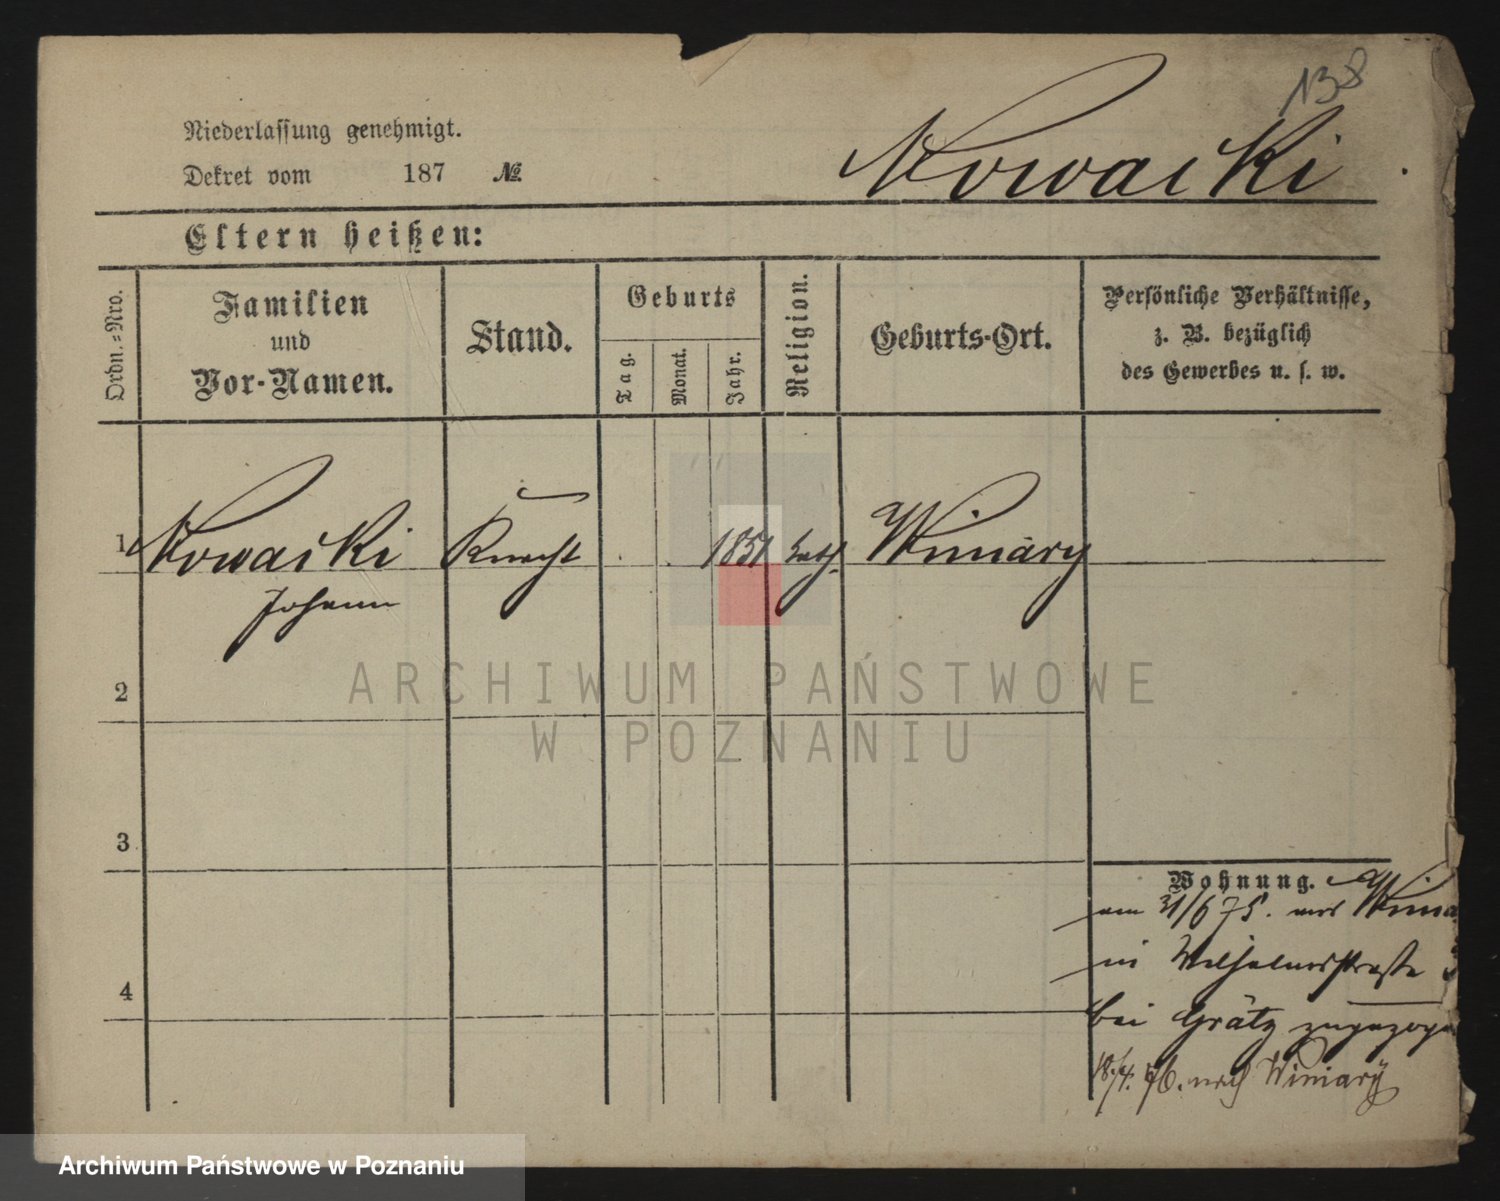 138
Niederlassung genehmigt.
Dekret vom 187 №
Nowacki
Eltern heißen:
Ordn.-Nro.
Familien
und
Vor-Namen.
Stand.
Geburts
Tag.
Monat.
Jahr.
Religion.
Geburts-Ort.
Persönliche Verhältnisse,
z. B. bezüglich
des Gewerbes u. s. w.
1 Nowacki Knecht 1851 kath. Winiary
Johann
2
3
4
Wohnung.
am 31/6 75. aus Winia
in Wilhelmsstraße
bei Grätz zugezogen
18./4. 76. nach Winiary
ARCHIWUM PAŃSTWOWE
W POZNANIU
Archiwum Państwowe w Poznaniu